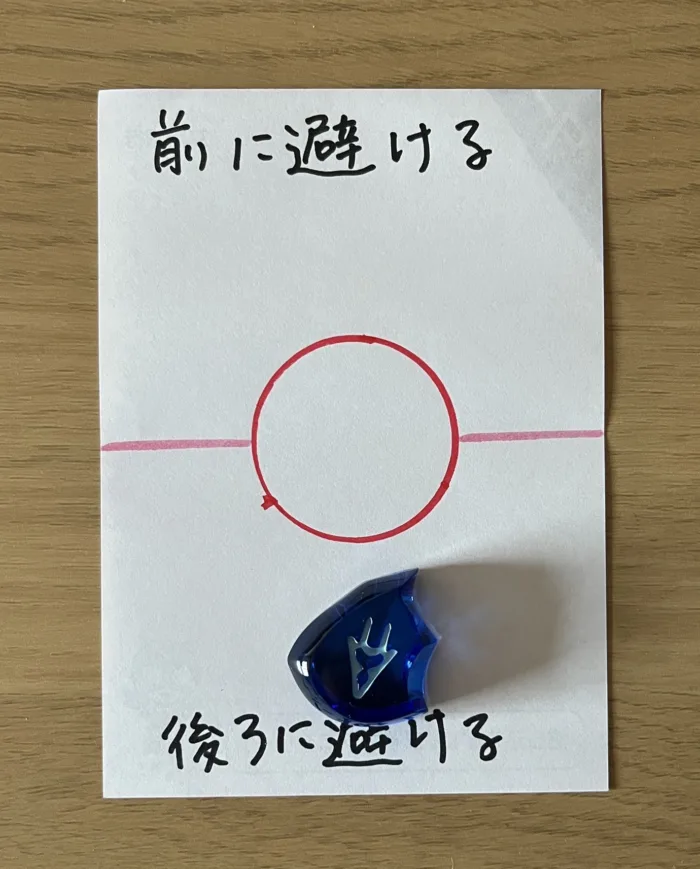 前に避ける
後ろに避ける